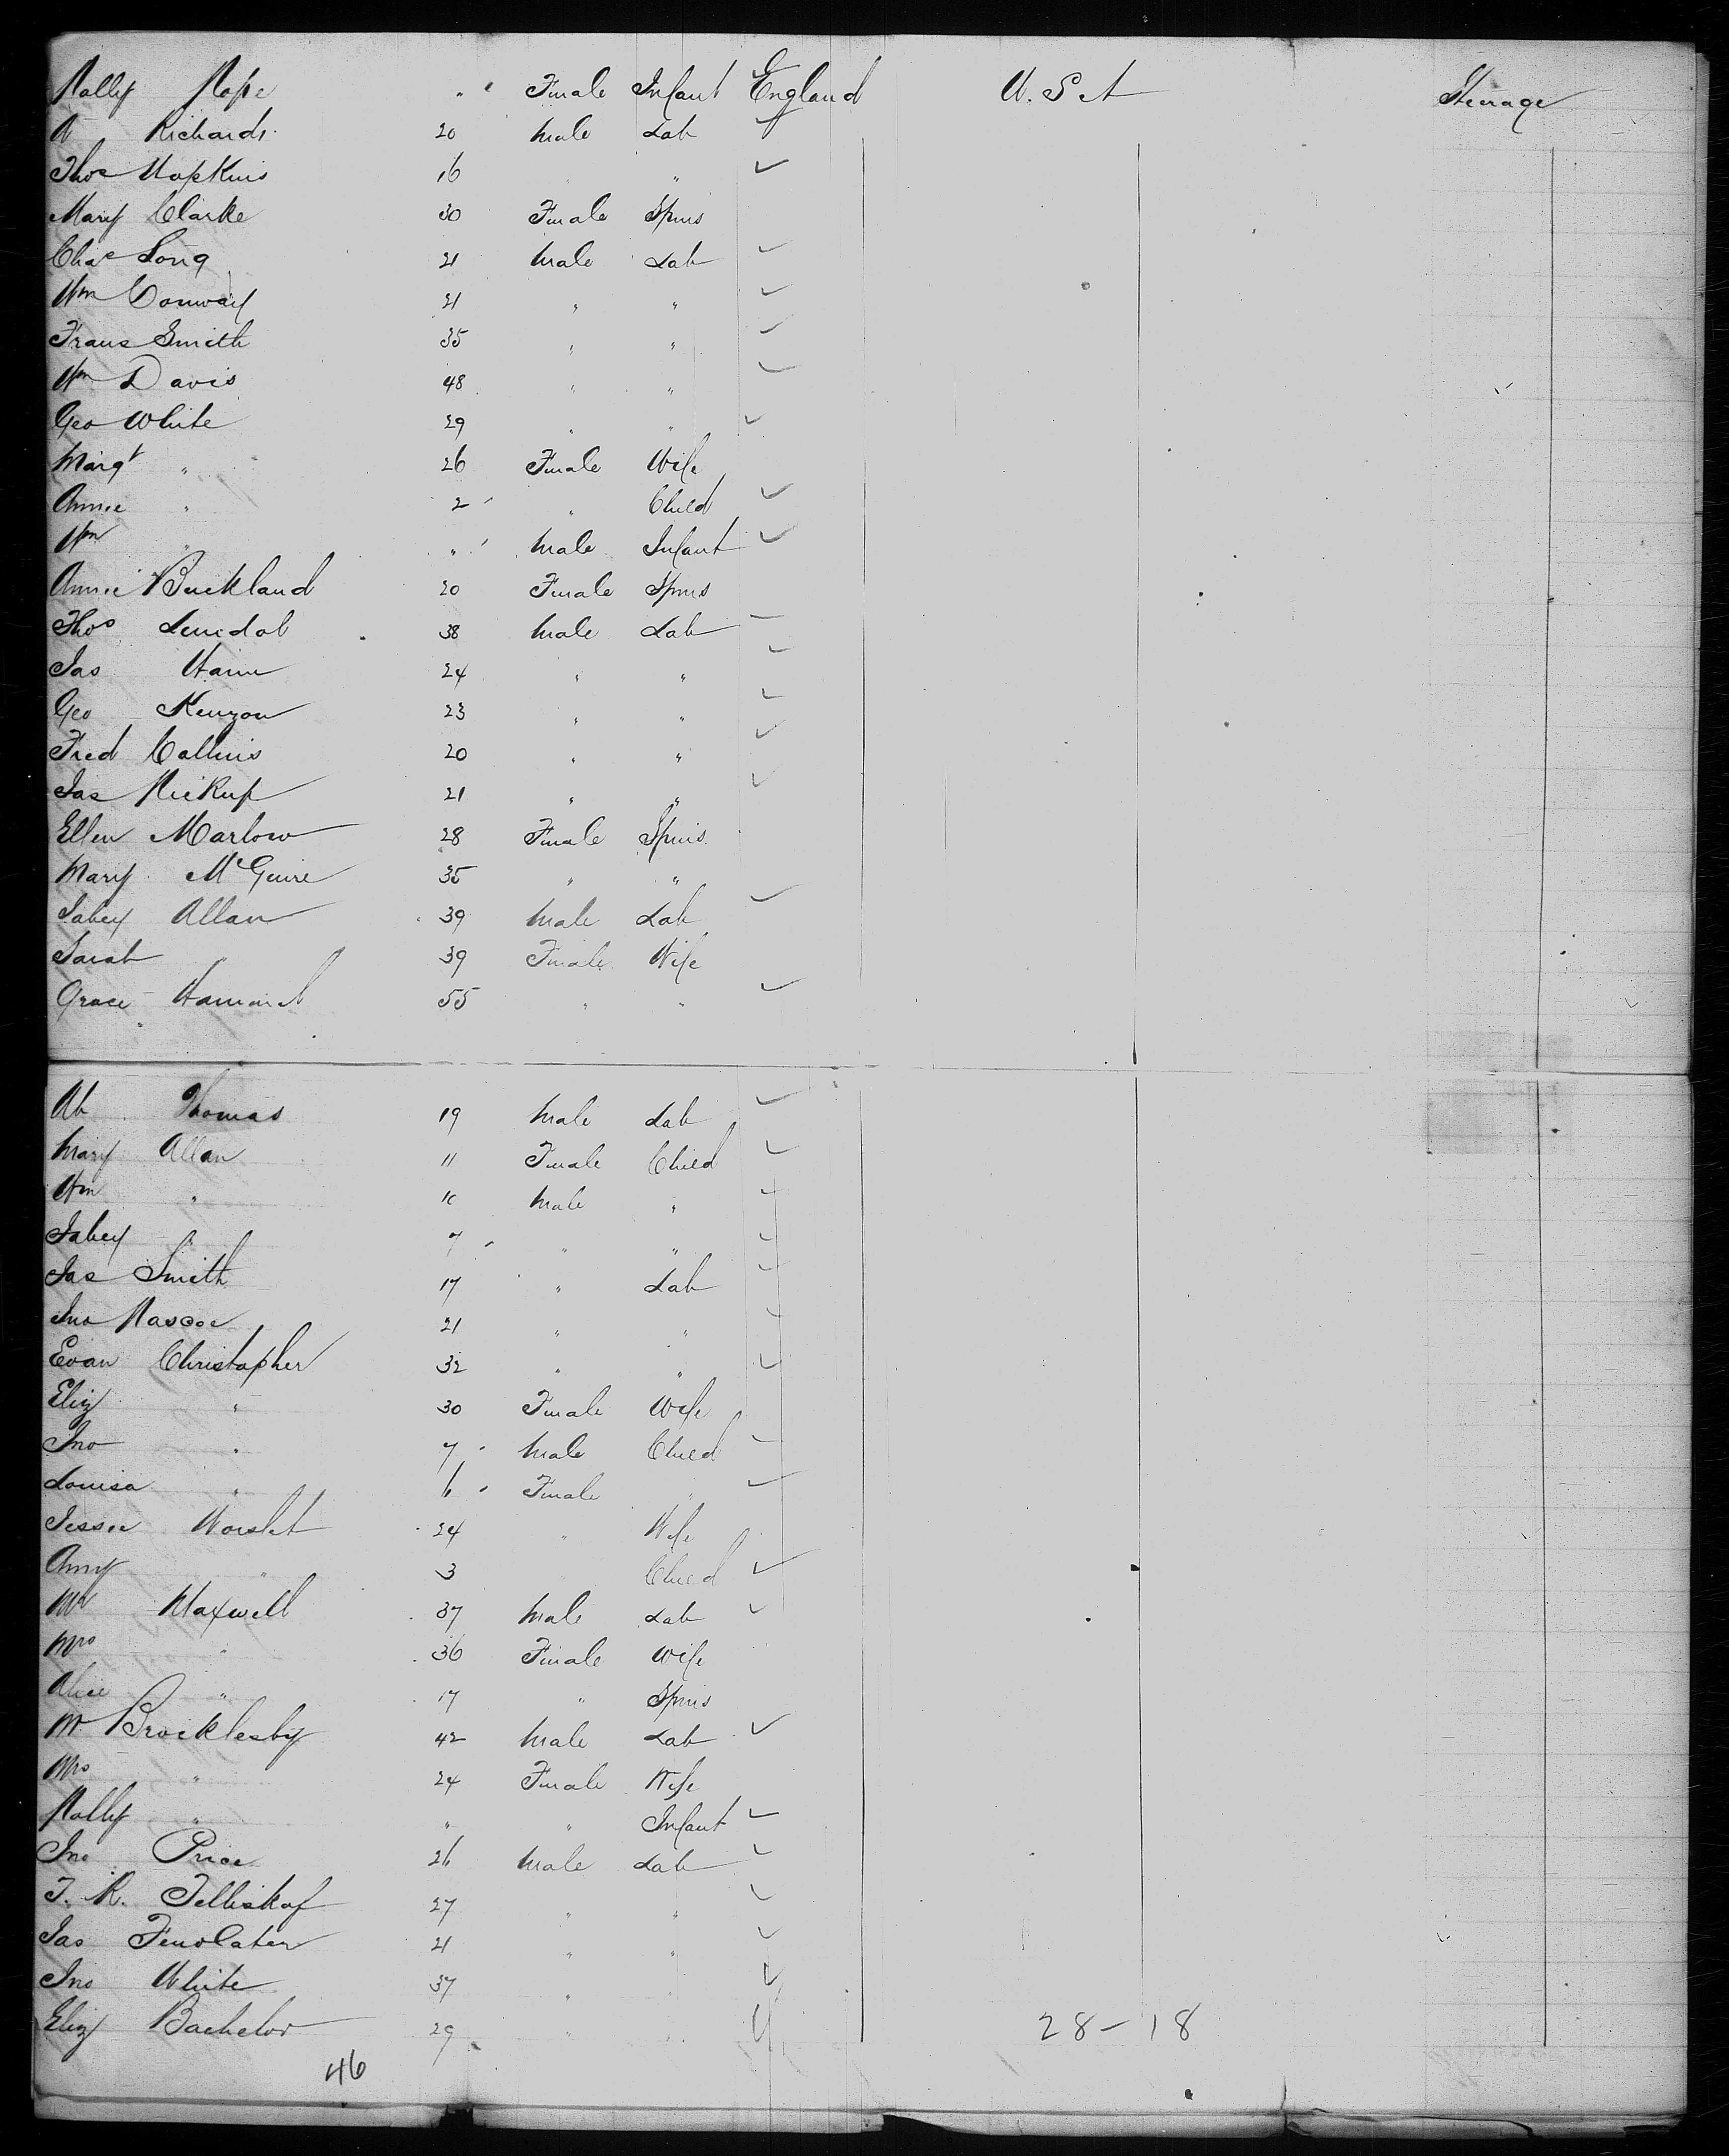 Nally Pope " Female Infant England U.S.A Steerage
A Richards 20 Male Lab
Thos Hopkins 16 " "
Mary Clarke 30 Female Spins
Chas Long 21 Male Lab
Wm Conway 21 " "
Frans Smith 35 " "
Wm Davis 48 " "
Geo White 29 " "
Margt " 26 Female Wife
Annie " 2 " Child
Wm " " Male Infant
Annie Buckland 20 Female Spins
Thos 38 Male Lab
Jas Hann 24 " "
Geo Kenyon 23 " "
Fred Collins 20 " "
Jas Pickup 21 " "
Ellen Marlow 28 Female Spins
Mary McGuire 35 " "
Jabez Allan 39 Male Lab
Sarah " 39 Female Wife
Grace 55 " "
Ab Thomas 19 Male Lab
Mary Allan 11 Female Child
Wm " 10 Male "
Jabez " 7 " "
Jas Smith 17 " Lab
Jno Pascoe 21 " "
Evan Christopher 32 " "
Eliz " 30 Female Wife
Jno " 7 Male Child
Louisa " 6 Female "
Jessie 24 " Wife
Amy " 3 Child
Mr Maxwell 37 Male Lab
Mrs " 36 Female Wife
Alice " 17 " Spins
Mr Brocklesby 42 Male Lab
Mrs " 24 Female Wife
Nally " " " Infant
Jno Price 26 Male Lab
T. R. 27 " "
Jas Findlater 21 " "
Jno White 37 "
Eliz Bachelor 29 " "
28-18
46